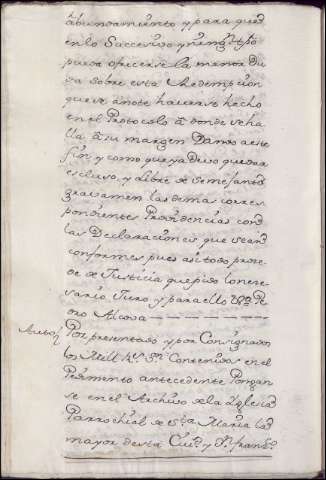 abundamiento y para que
en lo Succesivo y ningn. tpo
pueda ofrecerse la menor Du
da sobre esta Redempcion
que se anote haverse hecho
en el Protocolo a donde se ha
lla a su margen Dando a este
fin y como que ya devo quedar
escluso, y Libre de semejante
gravamen las demas corres
pondientes Providencias con
las Declaraciones que sean
conformes pues asi todo proce
de de Justicia que pido lo nece
sario Juro y para ello Vª Pe
dro Alcova
Auto Por presentado y por Consignados
los Mill Rs. Vn. Contenidos en el
Pedimento antecedente Pongan
se en el Archivo de la Yglesia
Parrochial de Sta. Maria la
mayor desta Ciud. y Dn. Franco.